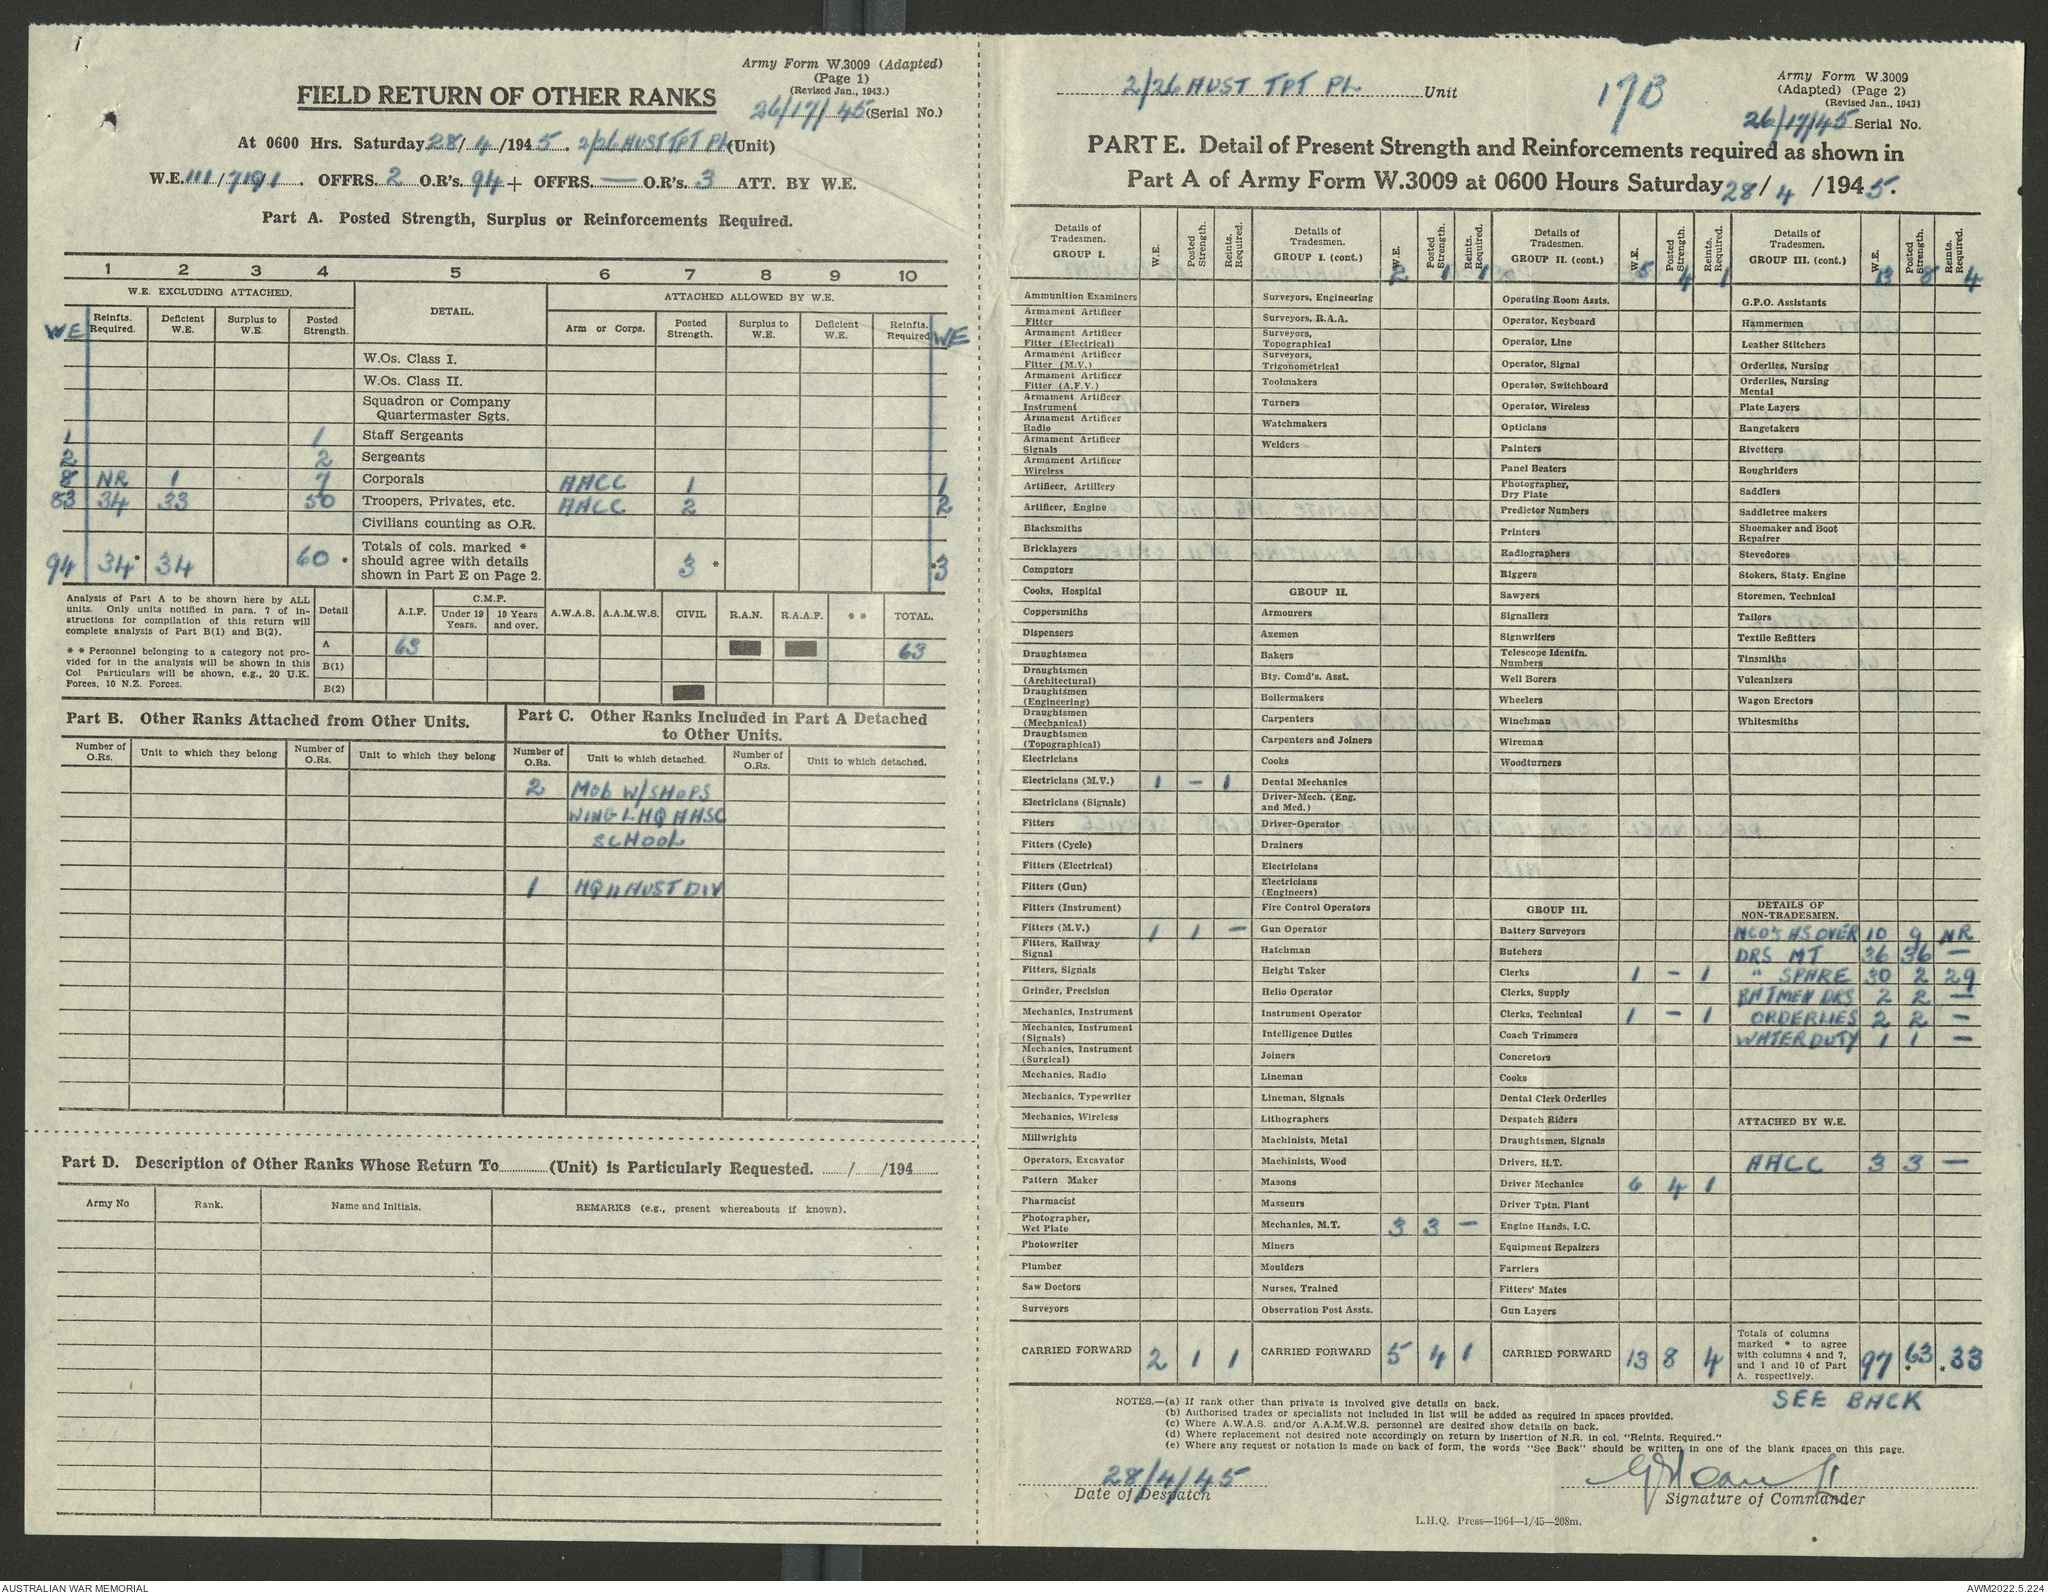 Army Form W.3009 (Adapted)
(Page 1)
(Revised Jan., 1943.)
26/17/45 (Serial No.)
FIELD RETURN OF OTHER RANKS
At 0600 Hrs. Saturday 28/4/1945. 2/26 AUST TPT PL (Unit)
W.E. 111/719/1. OFFRS. 2 O.R's. 94 + OFFRS. — O.R's. 3 ATT. BY W.E.
Part A. Posted Strength, Surplus or Reinforcements Required.
1 2 3 4 5 6 7 8 9 10
W.E. EXCLUDING ATTACHED. DETAIL. ATTACHED ALLOWED BY W.E.
WE Reinfts. Required. Deficient W.E. Surplus to W.E. Posted Strength. Arm or Corps. Posted Strength. Surplus to W.E. Deficient W.E. Reinfts. Required WE
W.Os. Class I.
W.Os. Class II.
Squadron or Company Quartermaster Sgts.
1 1 Staff Sergeants
2 2 Sergeants
8 NR 1 7 Corporals AACC 1 1
83 34 33 50 Troopers, Privates, etc. AACC 2 2
Civilians counting as O.R.
94 34* 34 60* Totals of cols. marked * should agree with details shown in Part E on Page 2. 3* *3
Analysis of Part A to be shown here by ALL
units. Only units notified in para. 7 of in-
structions for compilation of this return will
complete analysis of Part B(1) and B(2).
* * Personnel belonging to a category not pro-
vided for in the analysis will be shown in this
Col Particulars will be shown, e.g., 20 U.K.
Forces, 10 N.Z. Forces.
Detail A.I.F. C.M.F. Under 19 Years. 19 Years and over. A.W.A.S. A.A.M.W.S. CIVIL R.A.N. R.A.A.F. * * TOTAL.
A 63 63
B(1)
B(2)
Part B. Other Ranks Attached from Other Units.
Number of O.Rs. Unit to which they belong Number of O.Rs. Unit to which they belong
Part C. Other Ranks Included in Part A Detached
to Other Units.
Number of O.Rs. Unit to which detached. Number of O.Rs. Unit to which detached.
2 MOB W/SHOPS
WING LHQ AASC
SCHOOL
1 HQ 11 AUST DIV
Part D. Description of Other Ranks Whose Return To (Unit) is Particularly Requested. / /194
Army No Rank. Name and Initials. REMARKS (e.g., present whereabouts if known).
2/26 AUST TPT PL Unit
17B
Army Form W.3009
(Adapted) (Page 2)
(Revised Jan., 1943)
26/17/45 Serial No.
PART E. Detail of Present Strength and Reinforcements required as shown in
Part A of Army Form W.3009 at 0600 Hours Saturday 28/4/1945.
Details of Tradesmen. GROUP I. W.E. Posted Strength. Reints. Required.
Ammunition Examiners
Armament Artificer Fitter
Armament Artificer Fitter (Electrical)
Armament Artificer Fitter (M.V.)
Armament Artificer Fitter (A.F.V.)
Armament Artificer Instrument
Armament Artificer Radio
Armament Artificer Signals
Armament Artificer Wireless
Artificer, Artillery
Artificer, Engine
Blacksmiths
Bricklayers
Computors
Cooks, Hospital
Coppersmiths
Dispensers
Draughtsmen
Draughtsmen (Architectural)
Draughtsmen (Engineering)
Draughtsmen (Mechanical)
Draughtsmen (Topographical)
Electricians
Electricians (M.V.) 1 — 1
Electricians (Signals)
Fitters
Fitters (Cycle)
Fitters (Electrical)
Fitters (Gun)
Fitters (Instrument)
Fitters (M.V.) 1 1 —
Fitters, Railway Signal
Fitters, Signals
Grinder, Precision
Mechanics, Instrument
Mechanics, Instrument (Signals)
Mechanics, Instrument (Surgical)
Mechanics, Radio
Mechanics, Typewriter
Mechanics, Wireless
Millwrights
Operators, Excavator
Pattern Maker
Pharmacist
Photographer, Wet Plate
Photowriter
Plumber
Saw Doctors
Surveyors
CARRIED FORWARD 2 1 1
Details of Tradesmen. GROUP I. (cont.) W.E. Posted Strength. Reints. Required.
2 1 1
Surveyors, Engineering
Surveyors, R.A.A.
Surveyors, Topographical
Surveyors, Trigonometrical
Toolmakers
Turners
Watchmakers
Welders
GROUP II.
Armourers
Axemen
Bakers
Bty. Comd's. Asst.
Boilermakers
Carpenters
Carpenters and Joiners
Cooks
Dental Mechanics
Driver-Mech. (Eng. and Med.)
Driver-Operator
Drainers
Electricians
Electricians (Engineers)
Fire Control Operators
Gun Operator
Hatchman
Height Taker
Helio Operator
Instrument Operator
Intelligence Duties
Joiners
Lineman
Lineman, Signals
Lithographers
Machinists, Metal
Machinists, Wood
Masons
Masseurs
Mechanics, M.T. 3 3 —
Miners
Moulders
Nurses, Trained
Observation Post Assts.
CARRIED FORWARD 5 4 1
Details of Tradesmen. GROUP II. (cont.) W.E. Posted Strength. Reints. Required.
5 4 1
Operating Room Assts.
Operator, Keyboard
Operator, Line
Operator, Signal
Operator, Switchboard
Operator, Wireless
Opticians
Painters
Panel Beaters
Photographer, Dry Plate
Predictor Numbers
Printers
Radiographers
Riggers
Sawyers
Signallers
Signwriters
Telescope Identfn. Numbers
Well Borers
Wheelers
Winchman
Wireman
Woodturners
GROUP III.
Battery Surveyors
Butchers
Clerks 1 — 1
Clerks, Supply
Clerks, Technical 1 — 1
Coach Trimmers
Concretors
Cooks
Dental Clerk Orderlies
Despatch Riders
Draughtsmen, Signals
Drivers, H.T.
Driver Mechanics 6 4 1
Driver Tptn. Plant
Engine Hands, I.C.
Equipment Repairers
Farriers
Fitters' Mates
Gun Layers
CARRIED FORWARD 13 8 4
Details of Tradesmen. GROUP III. (cont.) W.E. Posted Strength. Reints. Required.
13 8 4
G.P.O. Assistants
Hammermen
Leather Stitchers
Orderlies, Nursing
Orderlies, Nursing Mental
Plate Layers
Rangetakers
Rivetters
Roughriders
Saddlers
Saddletree makers
Shoemaker and Boot Repairer
Stevedores
Stokers, Staty. Engine
Storemen, Technical
Tailors
Textile Refitters
Tinsmiths
Vulcanizers
Wagon Erectors
Whitesmiths
DETAILS OF NON-TRADESMEN.
NCO's AS OVER 10 9 NR
DRS MT 36 36 —
" SPARE 30 2 29
BATMEN DRS 2 2 —
ORDERLIES 2 2 —
WATER DUTY 1 1 —
ATTACHED BY W.E.
AACC 3 3 —
Totals of columns marked * to agree with columns 4 and 7, and 1 and 10 of Part A. respectively. 97 *63 *33
SEE BACK
NOTES.—(a) If rank other than private is involved give details on back.
(b) Authorised trades or specialists not included in list will be added as required in spaces provided.
(c) Where A.W.A.S. and/or A.A.M.W.S. personnel are desired show details on back.
(d) Where replacement not desired note accordingly on return by insertion of N.R. in col. "Reints. Required."
(e) Where any request or notation is made on back of form, the words "See Back" should be written in one of the blank spaces on this page.
28/4/45
Date of Despatch
Signature of Commander
L.H.Q. Press—1964—1/45—208m.
AUSTRALIAN WAR MEMORIAL
AWM2022.5.224